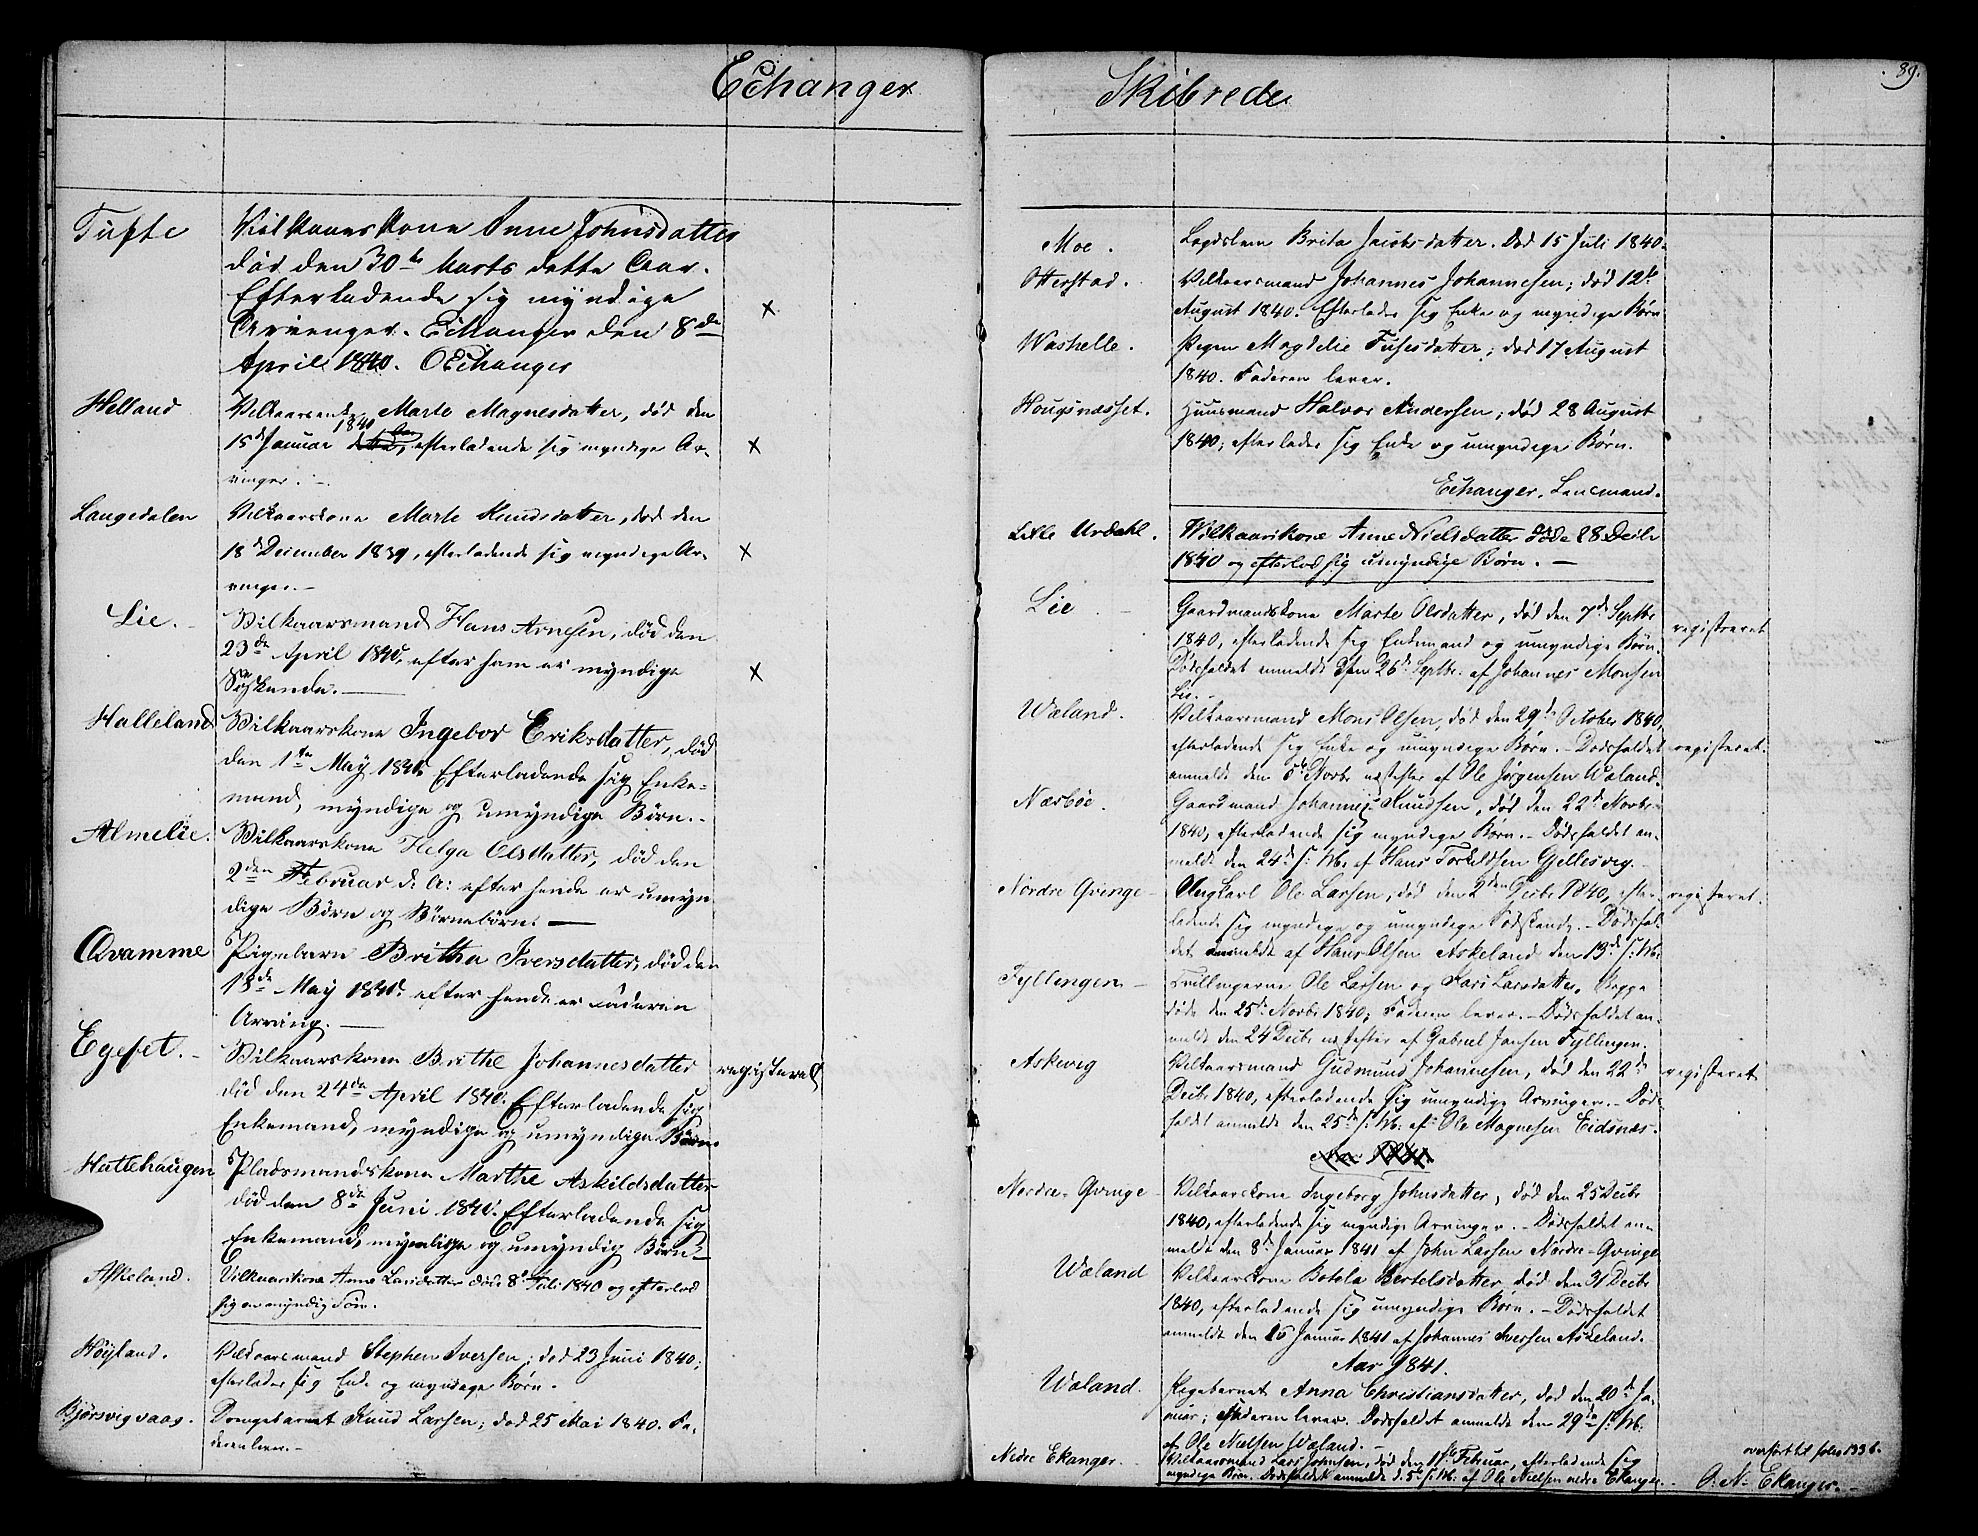 Echanger Skibrede
89.
Tufte
Vilkaarskone Anne Johnsdatter
død den 30te Marts dette Aar.
Efterladende sig myndige
Arvinger. Echanger den 8de
April 1840. OEchanger
x
Helland
Vilkaarsenke Marte Magnesdatter, død den
15de Januar 1840, efterladende sig myndige Ar-
vinger. -
x
Langedalen
Vilkaarskone Marte Knudsdatter, død den
18de December 1839, efterladende sig myndige Ar-
vinger. -
x
Lie. -
Vilkaarsmand Hans Arnesen, død den
23de April 1840, efter ham er myndige
Søskende. -
x
Halleland
Vilkaarskone Ingebor Eriksdatter, død
den 1te May 1840 Efterladende sig Enke-
mand, myndige og umyndige Børn. -
Almelie.
Vilkaarskone Helga Olsdatter, død den
2den Februar d: A: efter hende er umyn
dige Børn og Børnebørn. -
Qvamme
Pigebarn Britha Iversdatter, død den
13de May 1840. efter hende er Faderen
Arving. -
Egeset. -
Vilkaarskone Brithe Johannesdatter
død den 24de April 1840. Efterladende sig
Enkemand, myndige og umyndige Børn.
registeret
Hattehaugen
Pladsmandskone Marthe Askildsdatter
død den 8de Juni 1840. Efterladende sig
Enkemand, myndige og umyndig Børn. -
Askeland.
Vilkaarskone Anne Larsdatter døde 8de Juli 1840 og efterlod
sig en myndig Søn.
Høyland.
Vilkaarsmand Stephen Iversen; død 23 Juni 1840;
efterlader sig Enke og myndige Børn.
Bjørsvigvaag.
Drengebarnet Knud Larsen; død 25 Mai 1840. Fa-
deren lever. -
Moe.
Lægdslem Brita Jacobsdatter. Død 15 Juli 1840.
Otterstad.
Vilkaarsmand Johannes Johannesen; død 12te
August 1840. Efterlader sig Enke og myndige Børn
Washelle.
Pigen Magdelie Fusesdatter; død 17 August
1840. Faderen lever.
Hougsnæsset.
Huusmand Halvor Andersen; død 28 August
1840; efterlader sig Enke og umyndige Børn.
Echanger, Lensmand.
Litle Urdahl.
Vilkaarskone Anne Nielsdatter døde 28 Decbr
1840 og efterlod sig umyndige Børn. -
Lie -
Gaardmandskone Marte Olsdatter, død den 7de Septbr
1840, efterladende sig Enkemand og umyndige Børn.
Dødsfaldet anmeldt den 26de Septbr. af Johannes Monsen
Lie. -
registreret
Waland.
Vilkaarsmand Mons Olsen, død den 29de October 1840,
efterladende sig Enke og umyndige Børn. - Dødsfaldet
anmeldt den 5te Novbr næstefter af Ole Jørgensen Waland.
registeret.
Næsbøe.
Gaardmand Johannes Knudsen, død den 22de Novbr
1840, efterladende sig myndige Børn. - Dødsfaldet an-
meldt den 24de s: M: af Hans Torkildsen Gjellesvig. -
Nordre Qvinge -
Ungkarl Ole Larsen, død den 2den Decbr 1840, efter-
ladende sig myndige og umyndige Sødskende. - Dødsfal-
det anmeldt af Hans Olsen Askeland den 13de s: M:
registeret.
Fyllingen -
Tvillingerne Ole Larsen og Kari Larsdatter, begge
døde den 25de Novbr 1840; Faderen lever. - Dødsfaldet an-
meldt den 24 Decbr næstefter af Gabriel Jansen Fyllingen.
Askevig
Vilkaarsmand Gudmund Johannesen, død den 22de
Decbr 1840, efterladende sig umyndige Arvinger. - Døds-
faldet anmeldt den 25de s: M: af Ole Magnesen Eidsnæs.
registeret
Nordre-Qvinge -
Vilkaarskone Ingeborg Johnsdatter, død den 25 Decbr
1840, efterladende sig myndige Arvinger. - Dødsfaldet an-
meldt den 8de Januar 1841 af John Larsen Nordre-Qvinge
Waland
Vilkaarskone Botola Bertelsdatter, død den 31 Decbr
1840, efterladende sig umyndige Børn. - Dødsfaldet
anmeldt den 15 Januar 1841 af Johannes Iversen Askeland. -
Aar 1841.
Waland.
Pigebarnet Anna Christiansdatter, død den 20de Ja-
nuar; Faderen lever. Dødsfaldet anmeldt den 29de s: M:
af Ole Nielsen Waland. -
Nedre Ekanger. -
Vilkaarsmand Lars Johnsen, død den 1ste Februar, efterladende sig
myndige Børn. Dødsfaldet anmeldt d. 5te s: M: af Ole Nielsen nedre Ekanger. -
overført til folio 133 b.
O. N. Ekanger. -